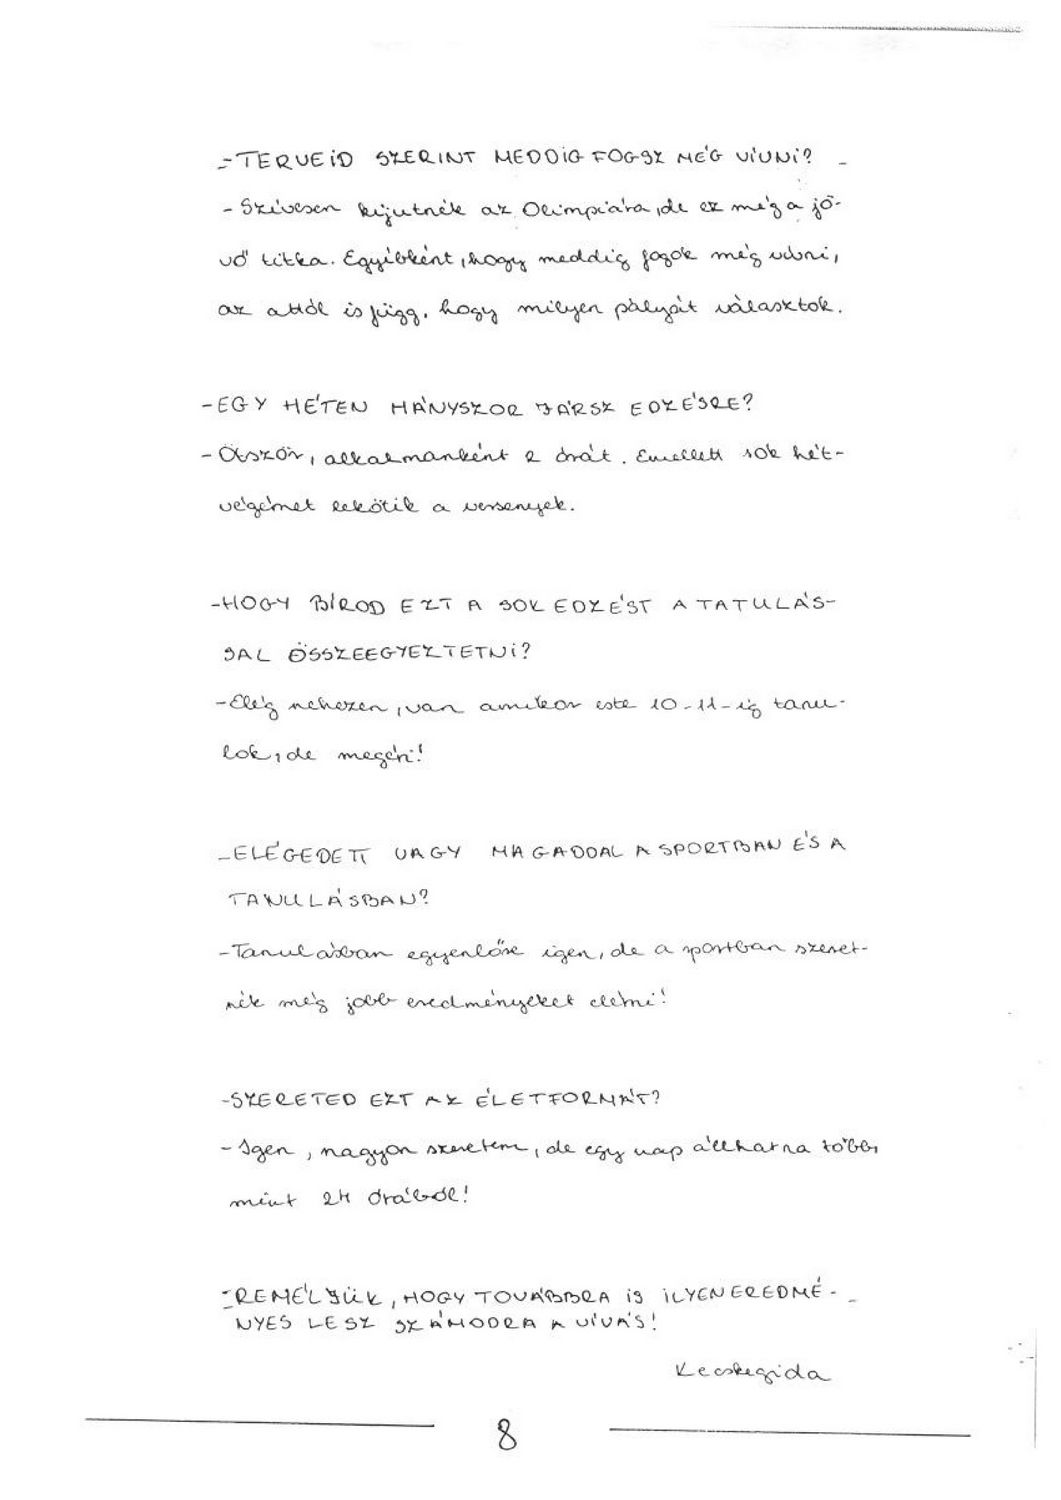 -TERVEID SZERINT MEDDIG FOGSZ MÉG VÍVNI?
- Szívesen kijutnék az Olimpiára, de ez még a jö-
vő titka. Egyébként, hogy meddig fogok még vívni,
az attól is függ, hogy milyen pályát választok.
-EGY HÉTEN HÁNYSZOR JÁRSZ EDZÉSRE?
- Ötször, alkalmanként 2 órát. Emellett sok hét-
végémet lekötik a versenyek.
-HOGY BÍROD EZT A SOK EDZÉST A TATULÁS-
SAL ÖSSZEEGYEZTETNI?
-Elég nehezen, van amikor este 10-11-ig tanu-
lok, de megéri!
-ELÉGEDETT VAGY MAGADDAL A SPORTBAN ÉS A
TANULÁSBAN?
-Tanulásban egyenlőre igen, de a sportban szeret-
nék még jobb eredményeket elérni!
-SZERETED EZT AZ ÉLETFORMÁT?
- Igen, nagyon szeretem, de egy nap állhatna több,
mint 24 órából!
-REMÉLJÜK, HOGY TOVÁBBRA IS ILYEN EREDMÉ-
NYES LESZ SZÁMODRA A VÍVÁS!
Kecskegida
8